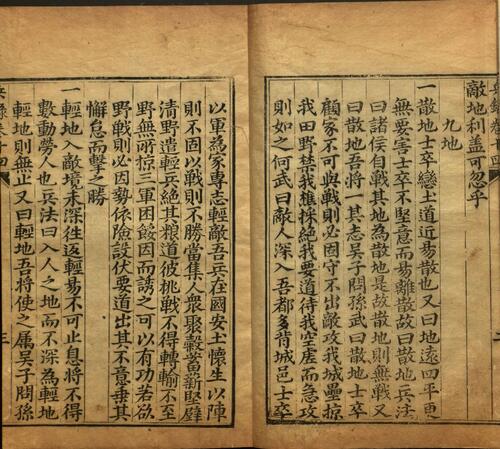 敵地利盖可忽乎
九地
一散地士卒戀土道近易散也又曰地遠四平更
無要害士卒不堅意而易離散故曰散地兵法
曰諸侯自戰其地為散地是故散地則無戰又
曰散地吾將一其志吳子問孫武曰散地士卒
顧家不可與戰則必固守不出敵攻我城壘掠
我田野禁我樵採絕我要道待我空虛而急攻
則如之何武曰敵人深入吾都多背城邑士卒
以軍為家專志輕敵吾兵在國安土懷生以陣
則不固以戰則不勝當集人衆聚穀蓄薪堅壁
清野遣輕兵絕其粮道彼挑戰不得轉輸不至
野無所掠三軍困餒因而誘之可以有功若欲
野戰則必因勢依險設伏要道出其不意垂其
懈怠而擊之勝
一輕地入敵境未深往返輕易不可止息將不得
數動勞人也兵法曰入人之地而不深為輕地
輕地則無止又曰輕地吾將使之屬吳子問孫
兵錄卷十四
三